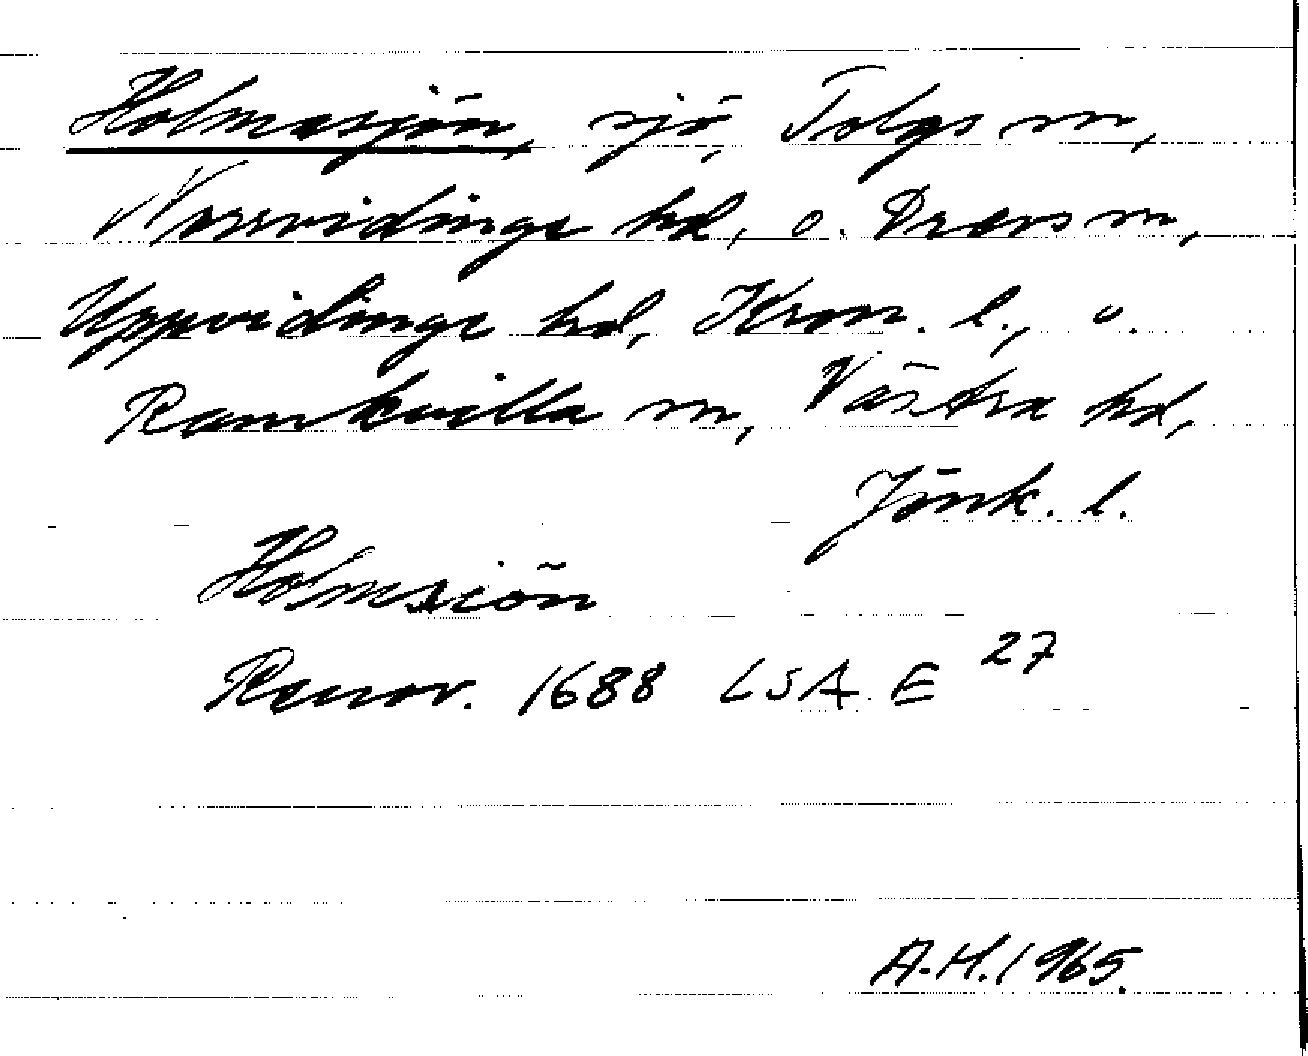 Holmasjön, sjö, Tolgs sn,
Norrvidinge hd, o. Drevs sn,
Uppvidinge hd, Kron. l., o.
Ramkvilla sn, Västra hd,
Jönk. l.
Holmsiön
Renov. 1688 LSA E 27
A.H. 1965.